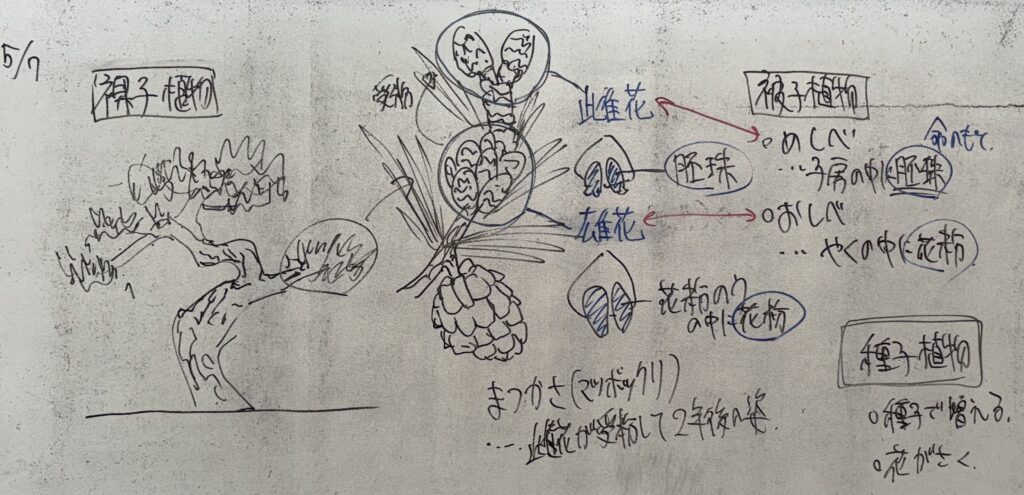 5/7
裸子植物
受粉
雌花
胚珠
雄花
花粉のう
の中に花粉
まつかさ(マツボックリ)
…雌花が受粉して2年後の姿
被子植物
○めしべ
…子房の中に胚珠
○おしべ
…やくの中に花粉
種子植物
○種子で増える。
○花がさく。